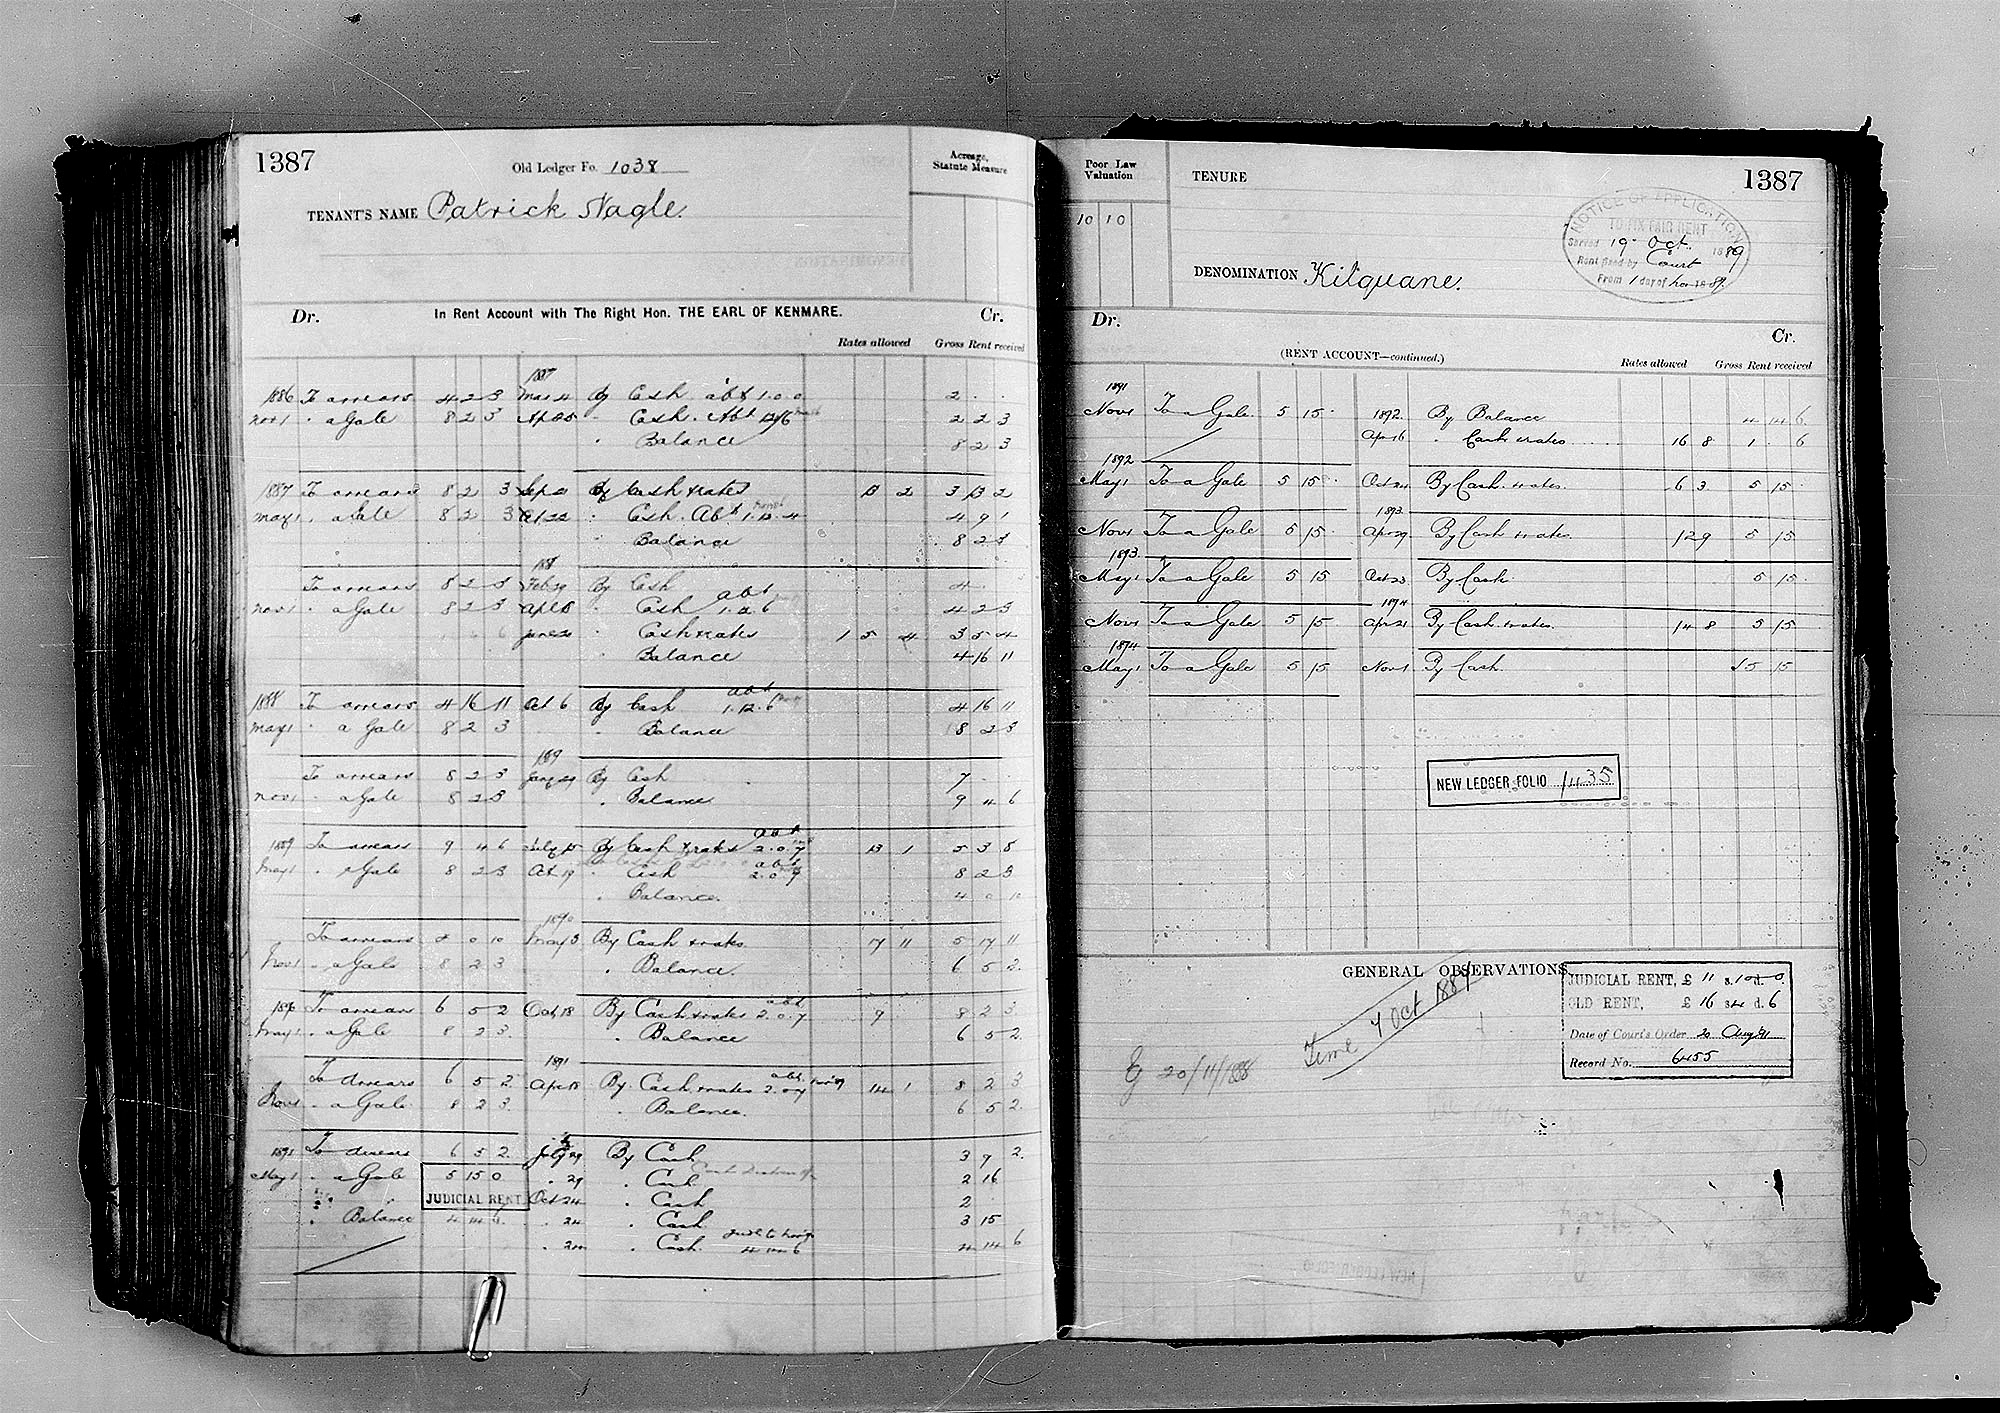 1387
Old Ledger Fo. 1038
Acreage,
Statute Measure
TENANT'S NAME Patrick Nagle.
Dr. In Rent Account with The Right Hon. THE EARL OF KENMARE. Cr.
Rates allowed Gross Rent received
1887
1886 To arrears 4 2 3 Mar 4 By Cash abt 1.0.0 2 . .
Nov 1 " a Gale 8 2 3 " Cash. Abt 2 2 3
" Balance 8 2 3
1887 To arrears 8 2 3 Sep 21 By Cash & rates 13 2 3 13 2
May 1 " a Gale 8 2 3 Oct 22 " Cash. Abt 1.12.4 4 9 1
" Balance 8 2 3
188
To arrears 8 2 3 Feb 29 By Cash 4 .
Nov 1 " a Gale 8 2 3 " Cash abt 1.12.6 4 2 3
June 20 " Cash & rates 1 5 4 3 5 4
" Balance 4 16 11
1888 To arrears 4 16 11 Oct 6 By Cash abt 1.12.6 4 16 11
May 1 " a Gale 8 2 3 " Balance 8 2 3
1889
To arrears 8 2 3 Jany 29 By Cash 7 . .
Nov 1 " a Gale 8 2 3 " Balance 9 4 6
1889 To arrears 9 4 6 July 15 By Cash & rates abt 2.0.7 13 1 5 3 8
May 1 " a Gale 8 2 3 Oct 19 " Cash abt 2.0.7 8 2 3
" Balance. 4 0 10
1890
To arrears 4 0 10 May 3 By Cash & rates 17 11 5 17 11
Nov 1 " a Gale 8 2 3 " Balance. 6 5 2
1890 To arrears 6 5 2 Oct 18 By Cash & rates abt 2.0.7 9 8 2 3
May 1 " a Gale 8 2 3 " Balance 6 5 2
1891
To arrears 6 5 2 Apr 18 By Cash & rates abt 2.0.7 Nov '89 14 1 8 2 3
Nov 1 " a Gale 8 2 3 " Balance. 6 5 2
1891 To arrears 6 5 2 July 29 By Cash 3 9 2
May 1 " a Gale 5 15 0 " 29 " Cash 2 16
JUDICIAL RENT Oct 24 " Cash 2 .
" Balance 4 14 6 " 24 " Cash 3 15
" 24 " Cash 4 14 6 4 14 6
Poor Law
Valuation
TENURE
1387
10 10
NOTICE OF APPLICATION
TO FIX FAIR RENT
Served 19 Oct 1889
Rent fixed by Court
From 1 day of Nov 1889.
DENOMINATION Kilquane.
Dr. Cr.
(RENT ACCOUNT—continued.)
Rates allowed Gross Rent received
1891
Nov 1 To a Gale 5 15 . 1892. By Balance 4 14 6
Apr 16 " Cash & rates 16 8 1 . 6
1892
May 1 To a Gale 5 15 . Oct 24 By Cash & rates 6 3 5 15 .
1893
Nov 1 To a Gale 5 15 Apr 29 By Cash & rates 12 9 5 15
1893
May 1 To a Gale 5 15 Oct 23 By Cash. 5 15 .
1894
Nov 1 To a Gale 5 15 Apr 21 By Cash & rates 14 8 5 15
1894
May 1 To a Gale 5 15 Nov 1 By Cash 5 15
NEW LEDGER FOLIO 1435
GENERAL OBSERVATIONS
Time 7 Oct 1887
20/11/1888
JUDICIAL RENT, £ 11 s. 10 d. 0
OLD RENT, £ 16 s. 4 d. 6
Date of Court's Order 20 Aug 91
Record No. 6455